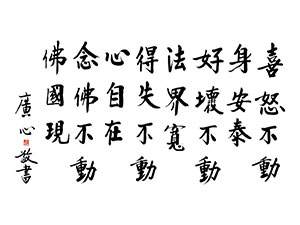 喜怒不動
身安泰
好壞不動
法界寬
得失不動
心自在
念佛不動
佛國現
廣心敬書